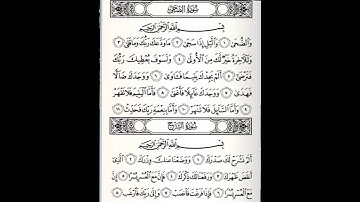 سُورَةُ الضُّحَىٰ
بِسْمِ اللَّهِ الرَّحْمَٰنِ الرَّحِيمِ
وَالضُّحَىٰ ١ وَاللَّيْلِ إِذَا سَجَىٰ ٢ مَا وَدَّعَكَ رَبُّكَ وَمَا قَلَىٰ ٣
وَلَلْآخِرَةُ خَيْرٌ لَّكَ مِنَ الْأُولَىٰ ٤ وَلَسَوْفَ يُعْطِيكَ رَبُّكَ
فَتَرْضَىٰ ٥ أَلَمْ يَجِدْكَ يَتِيمًا فَآوَىٰ ٦ وَوَجَدَكَ ضَالًّا
فَهَدَىٰ ٧ وَوَجَدَكَ عَائِلًا فَأَغْنَىٰ ٨ فَأَمَّا الْيَتِيمَ فَلَا تَقْهَرْ
٩ وَأَمَّا السَّائِلَ فَلَا تَنْهَرْ ١٠ وَأَمَّا بِنِعْمَةِ رَبِّكَ فَحَدِّثْ ١١
سُورَةُ الشَّرْحِ
بِسْمِ اللَّهِ الرَّحْمَٰنِ الرَّحِيمِ
أَلَمْ نَشْرَحْ لَكَ صَدْرَكَ ١ وَوَضَعْنَا عَنكَ وِزْرَكَ ٢ الَّذِي
أَنقَضَ ظَهْرَكَ ٣ وَرَفَعْنَا لَكَ ذِكْرَكَ ٤ فَإِنَّ مَعَ الْعُسْرِ يُسْرًا ٥ إِنَّ
مَعَ الْعُسْرِ يُسْرًا ٦ فَإِذَا فَرَغْتَ فَانصَبْ ٧ وَإِلَىٰ رَبِّكَ فَارْغَب ٨